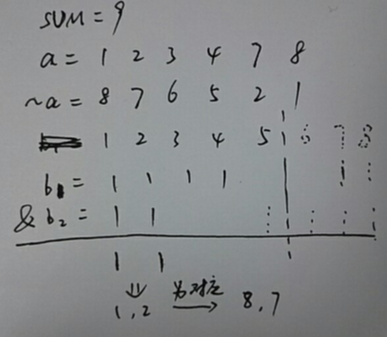 SUM = 9
a = 1 2 3 4 7 8
~a = 8 7 6 5 2 1
1 2 3 4 5 6 7 8
b1 = 1 1 1 1
& b2 = 1 1
1 1
⇓ 为对应
1, 2 → 8, 7